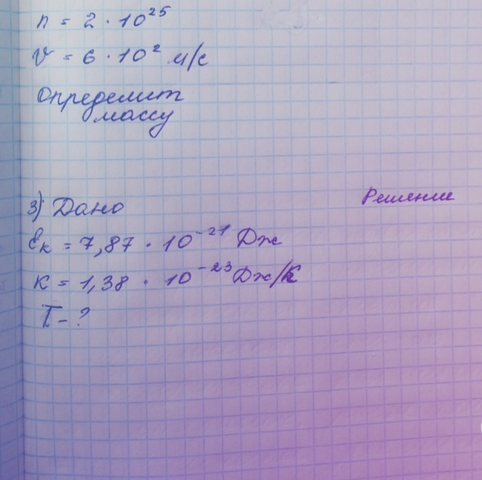 n = 2 · 10²⁵
v = 6 · 10² м/с
Определит
массу
3) Дано
Решение
Ек = 7,87 · 10⁻²¹ Дж
к = 1,38 · 10⁻²³ Дж/К
T - ?